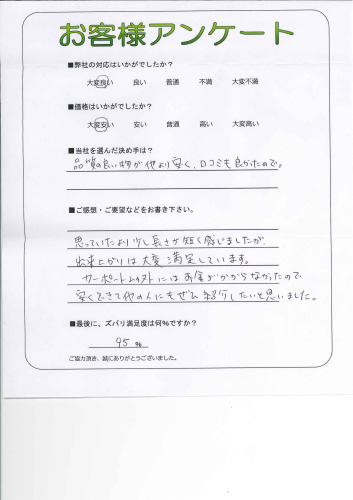 お客様アンケート
■弊社の対応はいかがでしたか？
大変良い 良い 普通 不満 大変不満
■価格はいかがでしたか？
大変安い 安い 普通 高い 大変高い
■当社を選んだ決め手は？
品質の良い物が他より安く、口コミも良かったので。
■ご感想・ご要望などをお書き下さい。
思っていたより少し長さが短く感じましたが
出来上がりは大変満足しています。
サーポートムタ外にはお金がかからなかったので
安くできて他の人にもぜひ紹介したいと思いました。
■最後に、ズバリ満足度は何％ですか？
95 %
ご協力頂き、誠にありがとうございました。